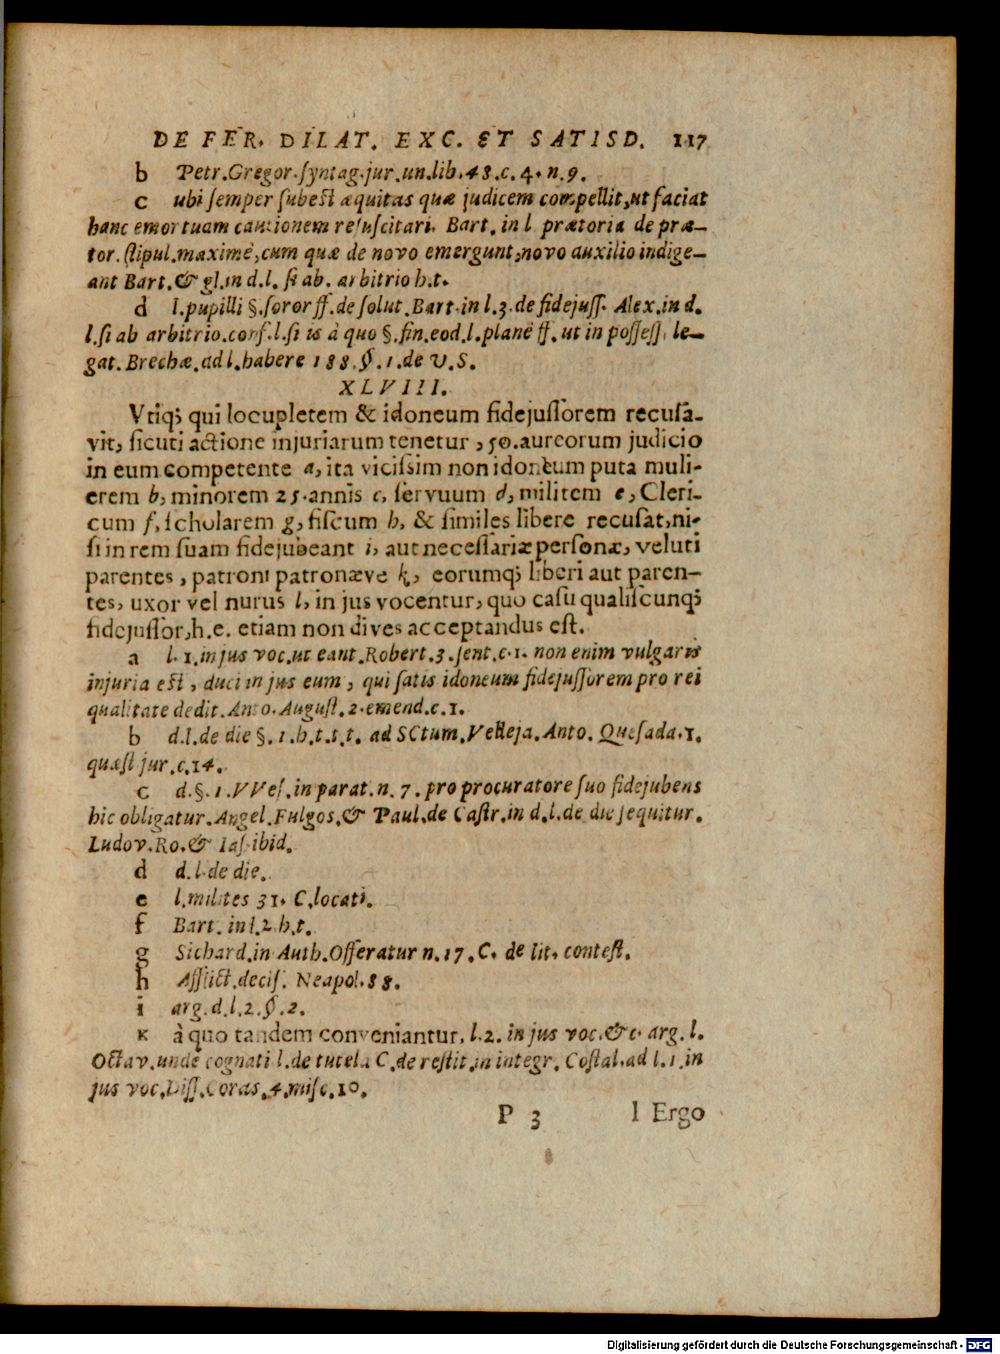 DE FER. DILAT. EXC. ET SATISD. 117
b Petr. Gregor. ſyntag. jur. un. lib. 48. c. 4. n. 9.
c ubi ſemper ſubeſt æquitas quæ judicem compellit, ut faciat
hanc emortuam cautionem reſuſcitari. Bart. in l. prætoria de præ-
tor. ſtipul. maximè, cum quæ de novo emergunt, novo auxilio indige-
ant Bart. & gl. in d. l. ſi ab. arbitrio h. t.
d l. pupilli §. ſoror ff. de ſolut. Bart. in l. 3. de fidejuſſ. Alex. in d.
l. ſi ab arbitrio. conf. l. ſi is à quo §. fin. eod. l. planè ff. ut in poſſeſſ. le-
gat. Brechæ. ad l. habere 188. §. 1. de V. S.
XLVIII.
Vtiq; qui locupletem & idoneum fidejuſſorem recuſa-
vit, ſicuti actione injuriarum tenetur, 50. aureorum judicio
in eum competente a, ita viciſsim non idoneum puta muli-
erem b, minorem 25. annis c, ſervuum d, militem e, Cleri-
cum f, ſcholarem g, fiſcum h, & ſimiles libere recuſat, ni-
ſi in rem ſuam fidejubeant i, aut neceſſariæ perſonæ, veluti
parentes, patroni patronæve k, eorumq; liberi aut paren-
tes, uxor vel nurus l, in jus vocentur, quo caſu qualiſcunq;
fidejuſſor, h. e. etiam non dives acceptandus eſt.
a l. 1. in jus voc. ut eant. Robert. 3. ſent. c. 1. non enim vulgaris
injuria eſt, duci in jus eum, qui ſatis idoneum fidejuſſorem pro rei
qualitate dedit. Anto. Auguſt. 2. emend. c. 1.
b d. l. de die §. 1. h. t. t. t. ad SCtum. Velleja. Anto. Queſada. 1.
quæſt jur. c. 14.
c d. §. 1. VVeſ. in parat. n. 7. pro procuratore ſuo fidejubens
hic obligatur. Angel. Fulgos. & Paul. de Caſtr. in d. l. de die ſequitur.
Ludov. Ro. & Iaſ. ibid.
d d. l. de die.
e l. milites 31. C. locati.
f Bart. in l. 2. h. t.
g Sichard. in Auth. Offeratur n. 17. C. de lit. conteſt.
h Afflict. deciſ. Neapol. 88.
i arg. d. l. 2. §. 2.
K à quo tandem conveniantur. l. 2. in jus voc. &c. arg. l.
Octav. unde cognati l. de tutela C. de reſtit. in integr. Coſtal. ad l. 1. in
jus voc. Diſſ. Coras. 4. miſc. 10.
P 3 l Ergo
Digitalisierung gefördert durch die Deutsche Forschungsgemeinschaft - DFG